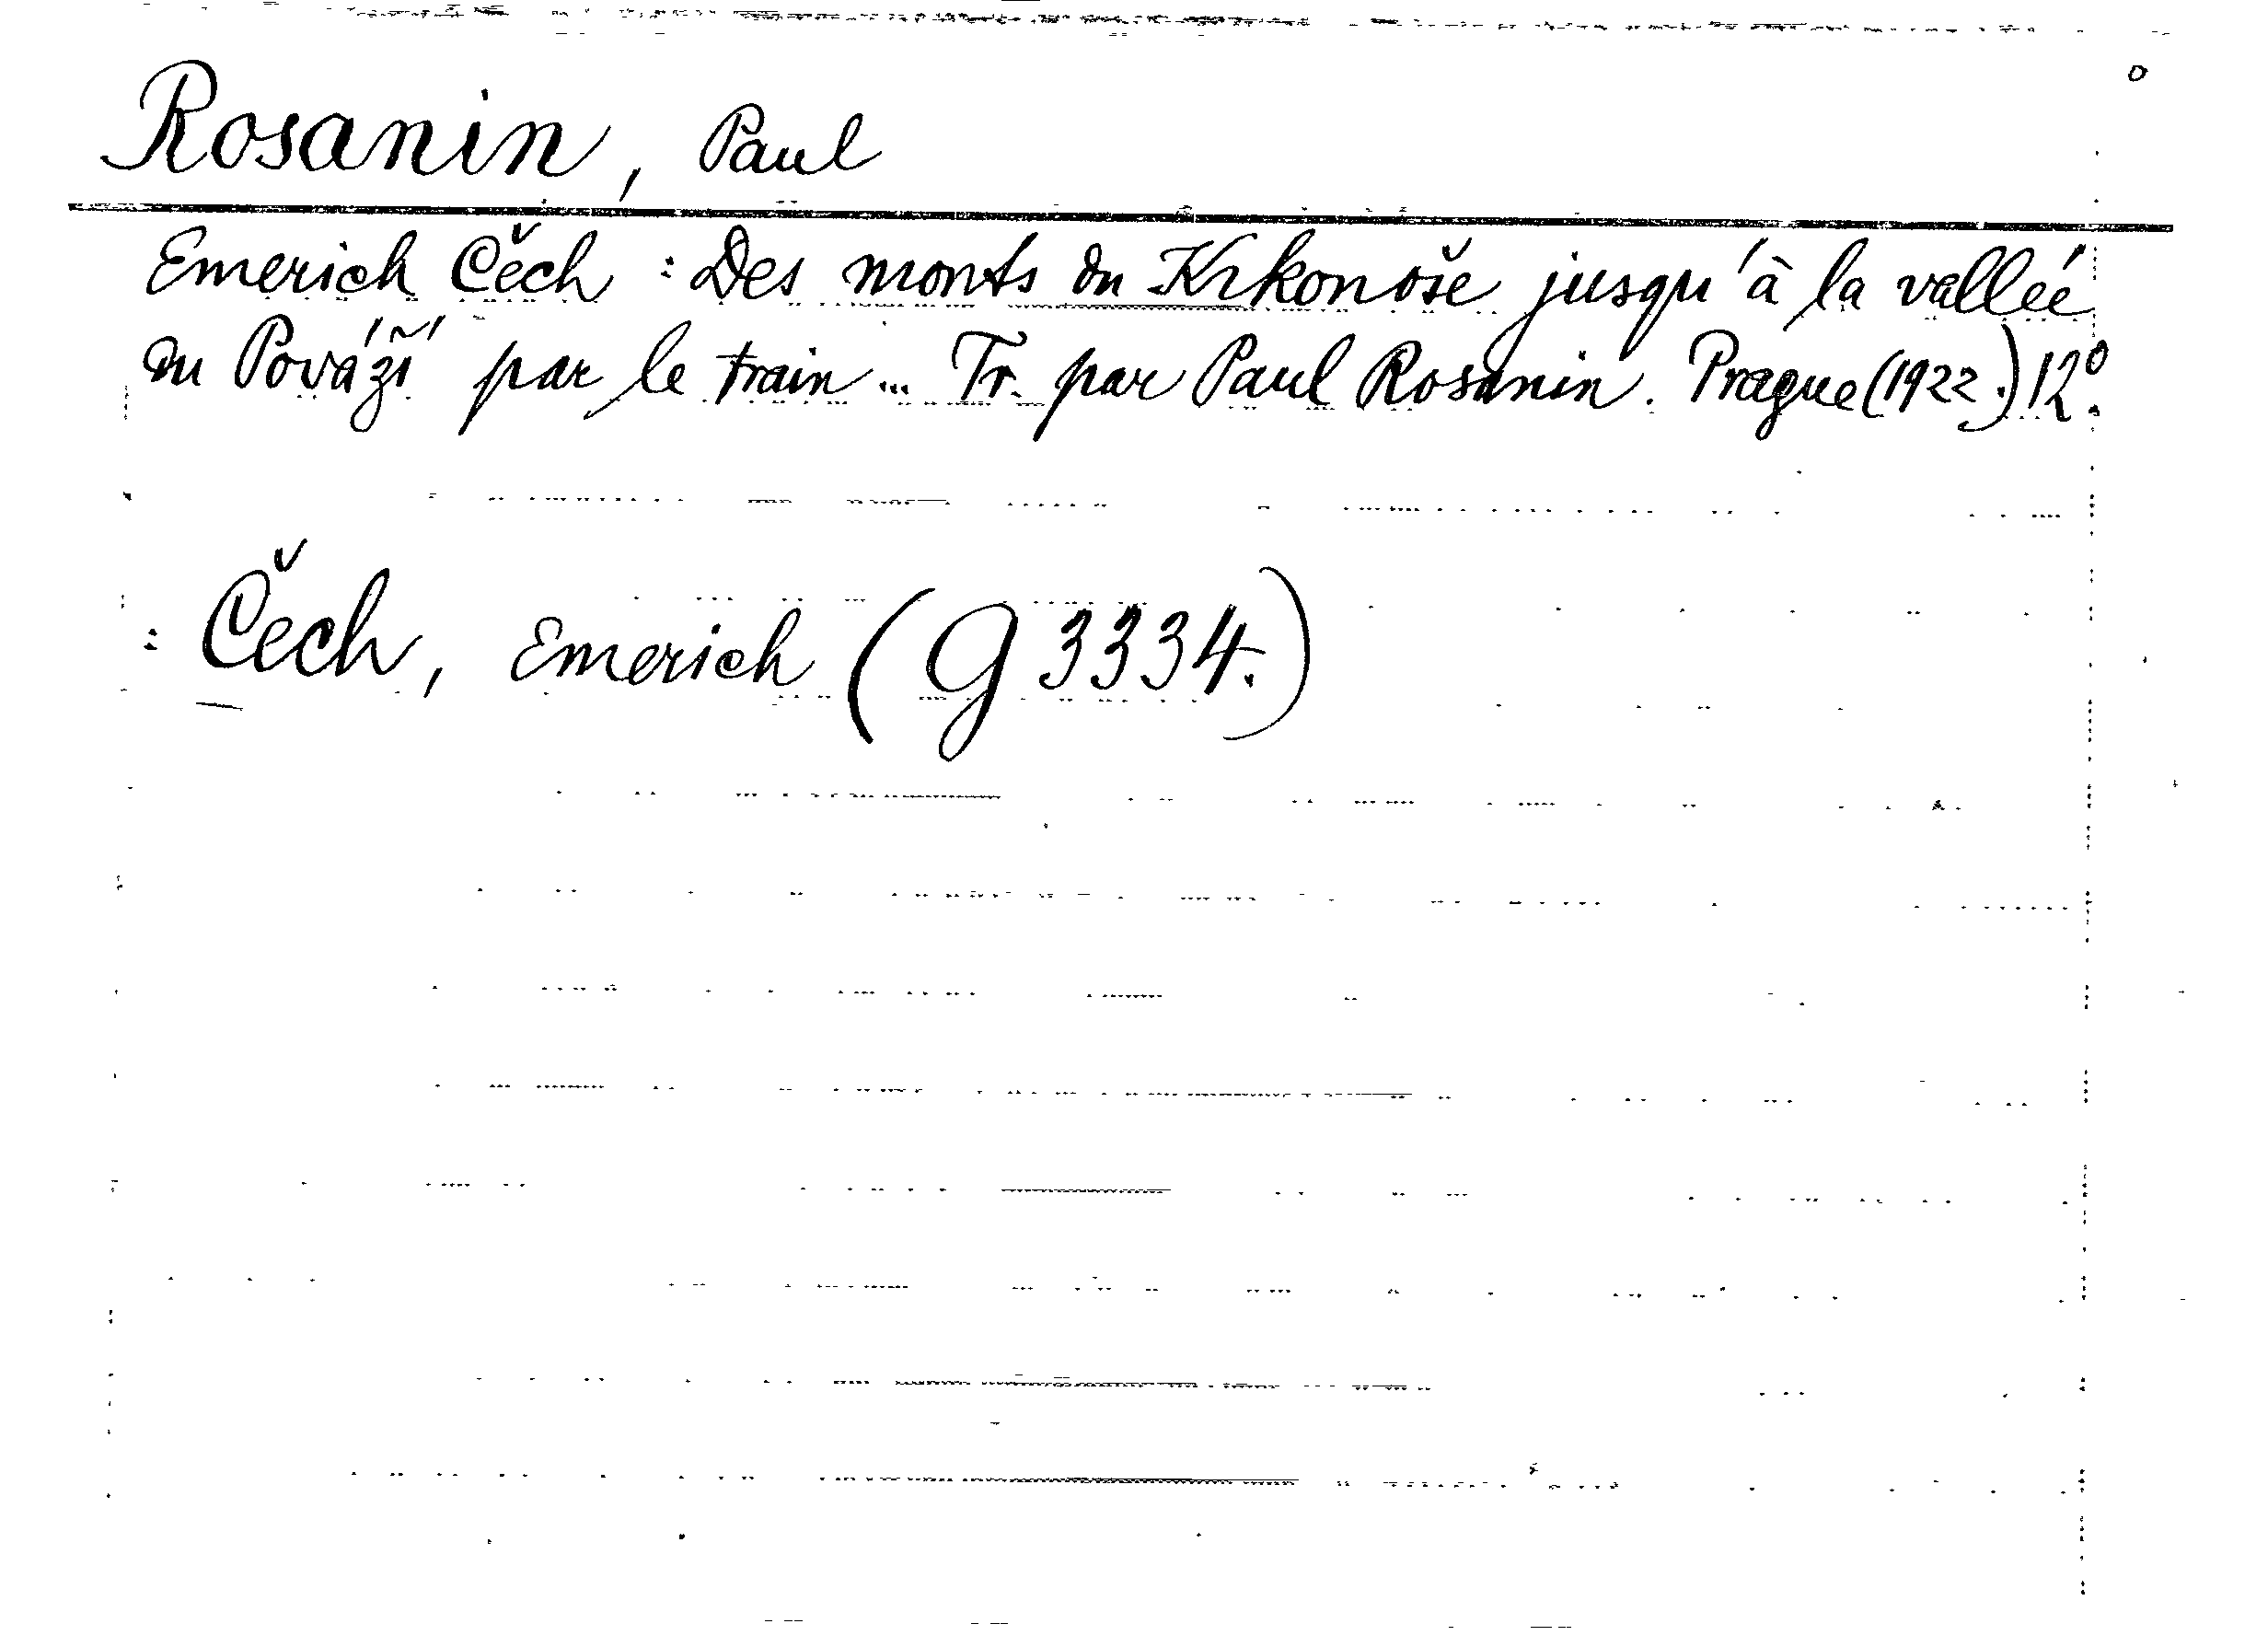 Rosanin, Paul
Emerich Čěch : Des monts du Krkonoše jusqu'à la valléé
du Považí par le train ... Tr. par Paul Rosanin. Prague (1922.) 12°.
: Čech, Emerich (G 3334.)